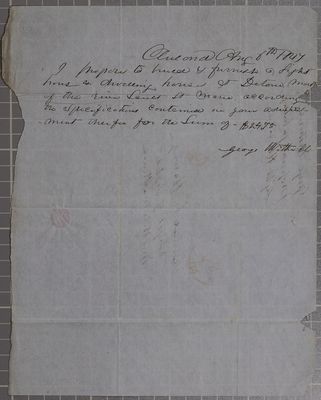 Cleveland Aug 6th 1847
I propose to build & furnish a Light
house & dwelling house at Detour Mouth
of the river Sault St Marie according
the Specifications contained in your advertise-
ment thereof for the Sum of
Geog